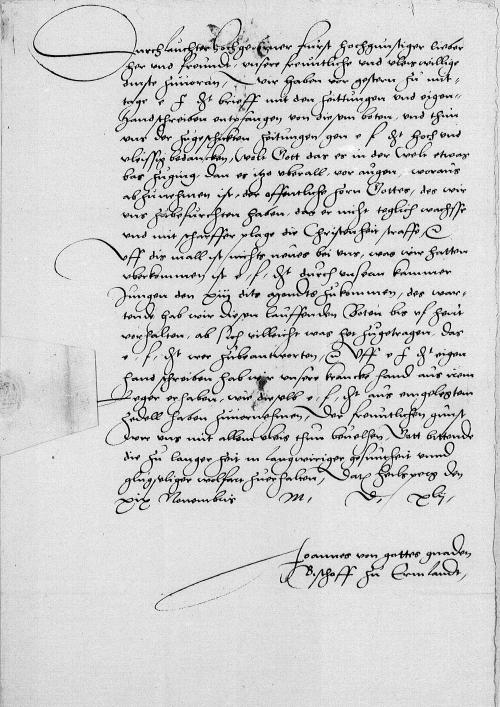 Durchlauchter hochgeborner furst hochgunstiger lieber
her und freundt, unsere freuntliche und vleiswillige
dinste zuvoran, Wir haben vor gestern zu mit-
tage e f dt brieff mit den zeittungen und eigen-
handschreiben entpfangen von diesem boten, und thun
uns der zugeschickten zeitungen gen e f dt hoch und
vleissig bedancken, wolt Gott das es in der welt etwas
bas zuging, dan es itzo uberall vor augen, woraus
abzunehmen ist, der offentliche zorn Gottes, des wir
uns zubefurchten haben, das er nicht teglich wachsse
und mit scharffer plage die Christenheit straffe,
Uff dis mall ist nichts neues bei uns, was wir hatten
uberkommen, ist e, f, dt durch unseren kammer
Jungen den xiij dits zukommen, des war-
tende hab wir diesen lauffenden boten bis uf heut
verhalten, ab sich villeicht was het zugetragen, das
e, f, dt wer zubeantworten, Uff e f dt eigen
handschreiben hab wir unsere krancke hand aus irem
leger erhaben, wie dieselb e, f, dt aus eingelegtem
zedell haben zuvornehmen, Der freuntlichen gunst
wir uns mit allem vleis thun bevelhen, Gott bittende
die zu langer zeit in langwiriger gesuntheit unnd
glugseliger wolfart zuerhalten, Dat Heilsperg den
xix Novembris M. D. xlj.
Joannes von gottes gnaden
Bischoff zu Ermlandt,